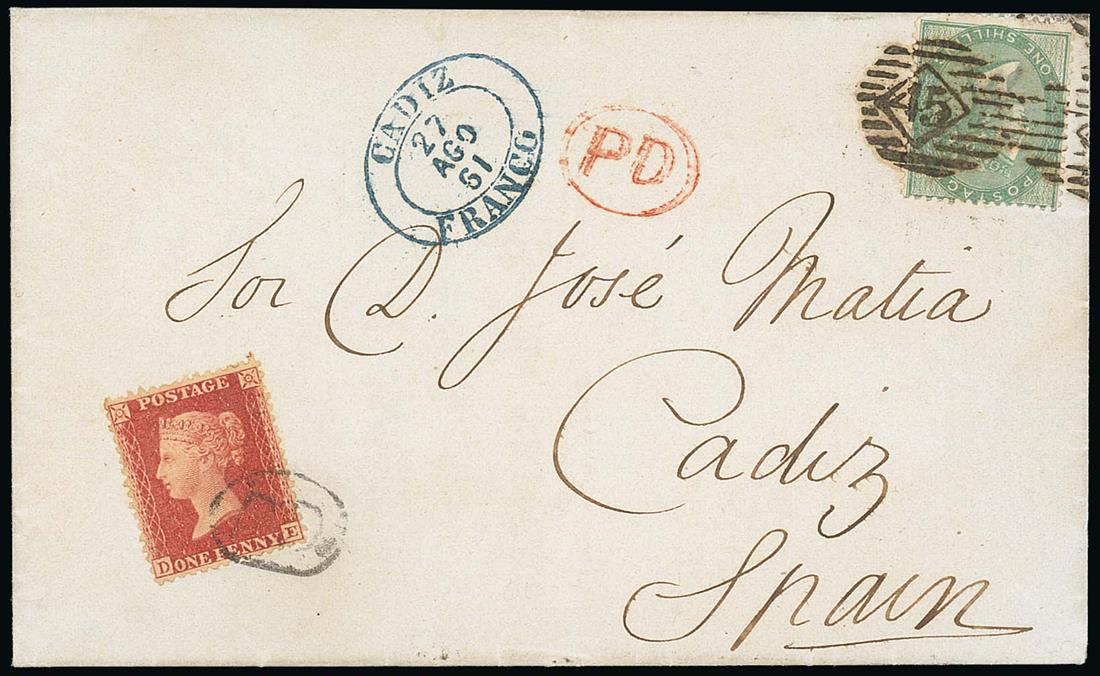 CADIZ
27
AGO
61
FRANCO
PD
POSTAG
ONE SHILLI
15
Sor D. José Matia
Cadiz
Spain
POSTAGE
D ONE PENNY E